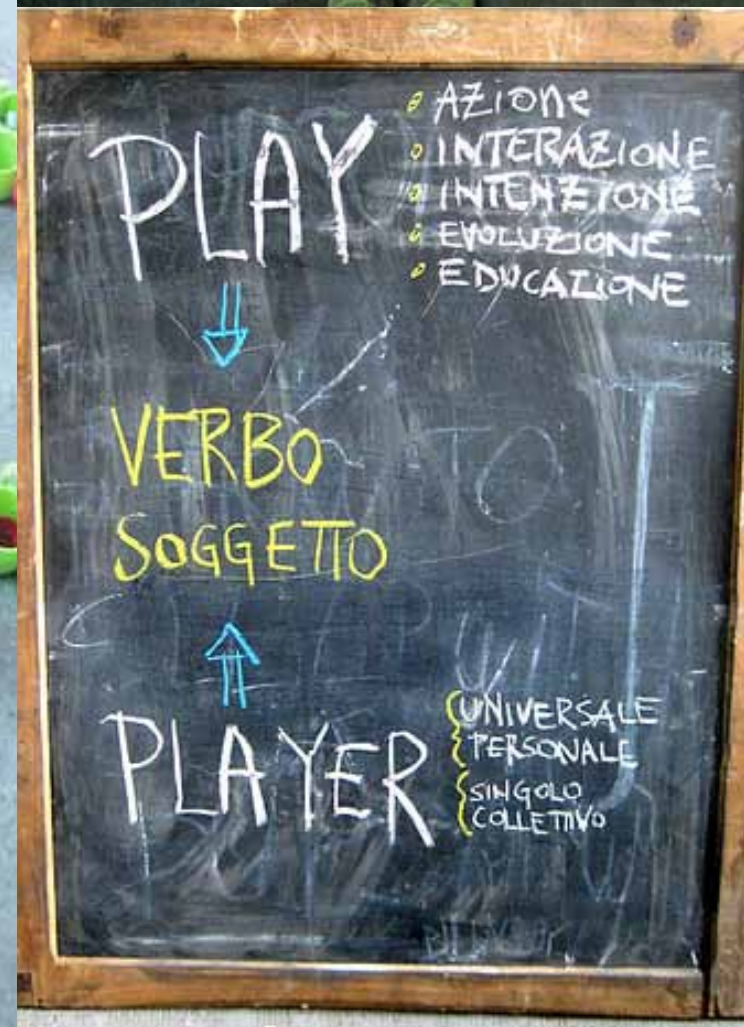 PLAY
AZIONE
INTERAZIONE
INTENZIONE
EVOLUZIONE
EDUCAZIONE
VERBO
SOGGETTO
PLAYER
UNIVERSALE
PERSONALE
SINGOLO
COLLETTIVO